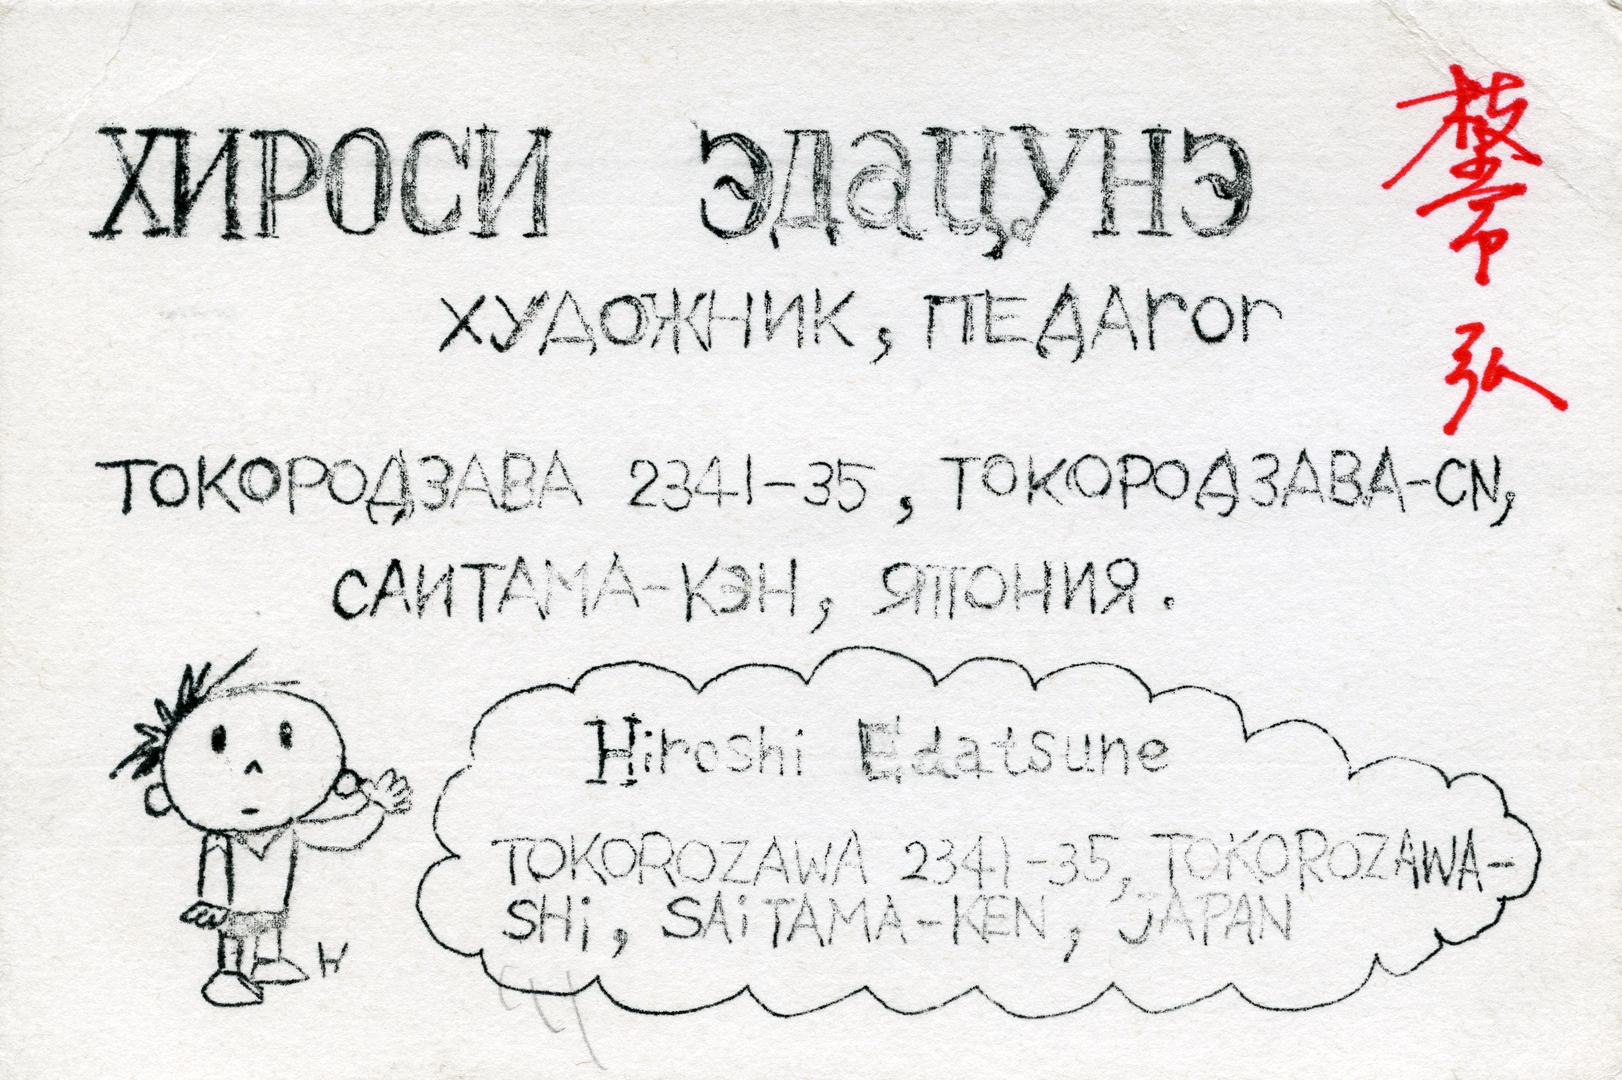 ХИРОСИ ЭДАЦУНЭ
ХУДОЖНИК, ПЕДАГОГ
枝常 弘
ТОКОРОДЗАВА 2341-35, ТОКОРОДЗАВА-СИ,
САИТАМА-КЭН, ЯПОНИЯ.
Hiroshi Edatsune
TOKOROZAWA 2341-35, TOKOROZAWA-
SHi, SAiTAMA-KEN, JAPAN
H